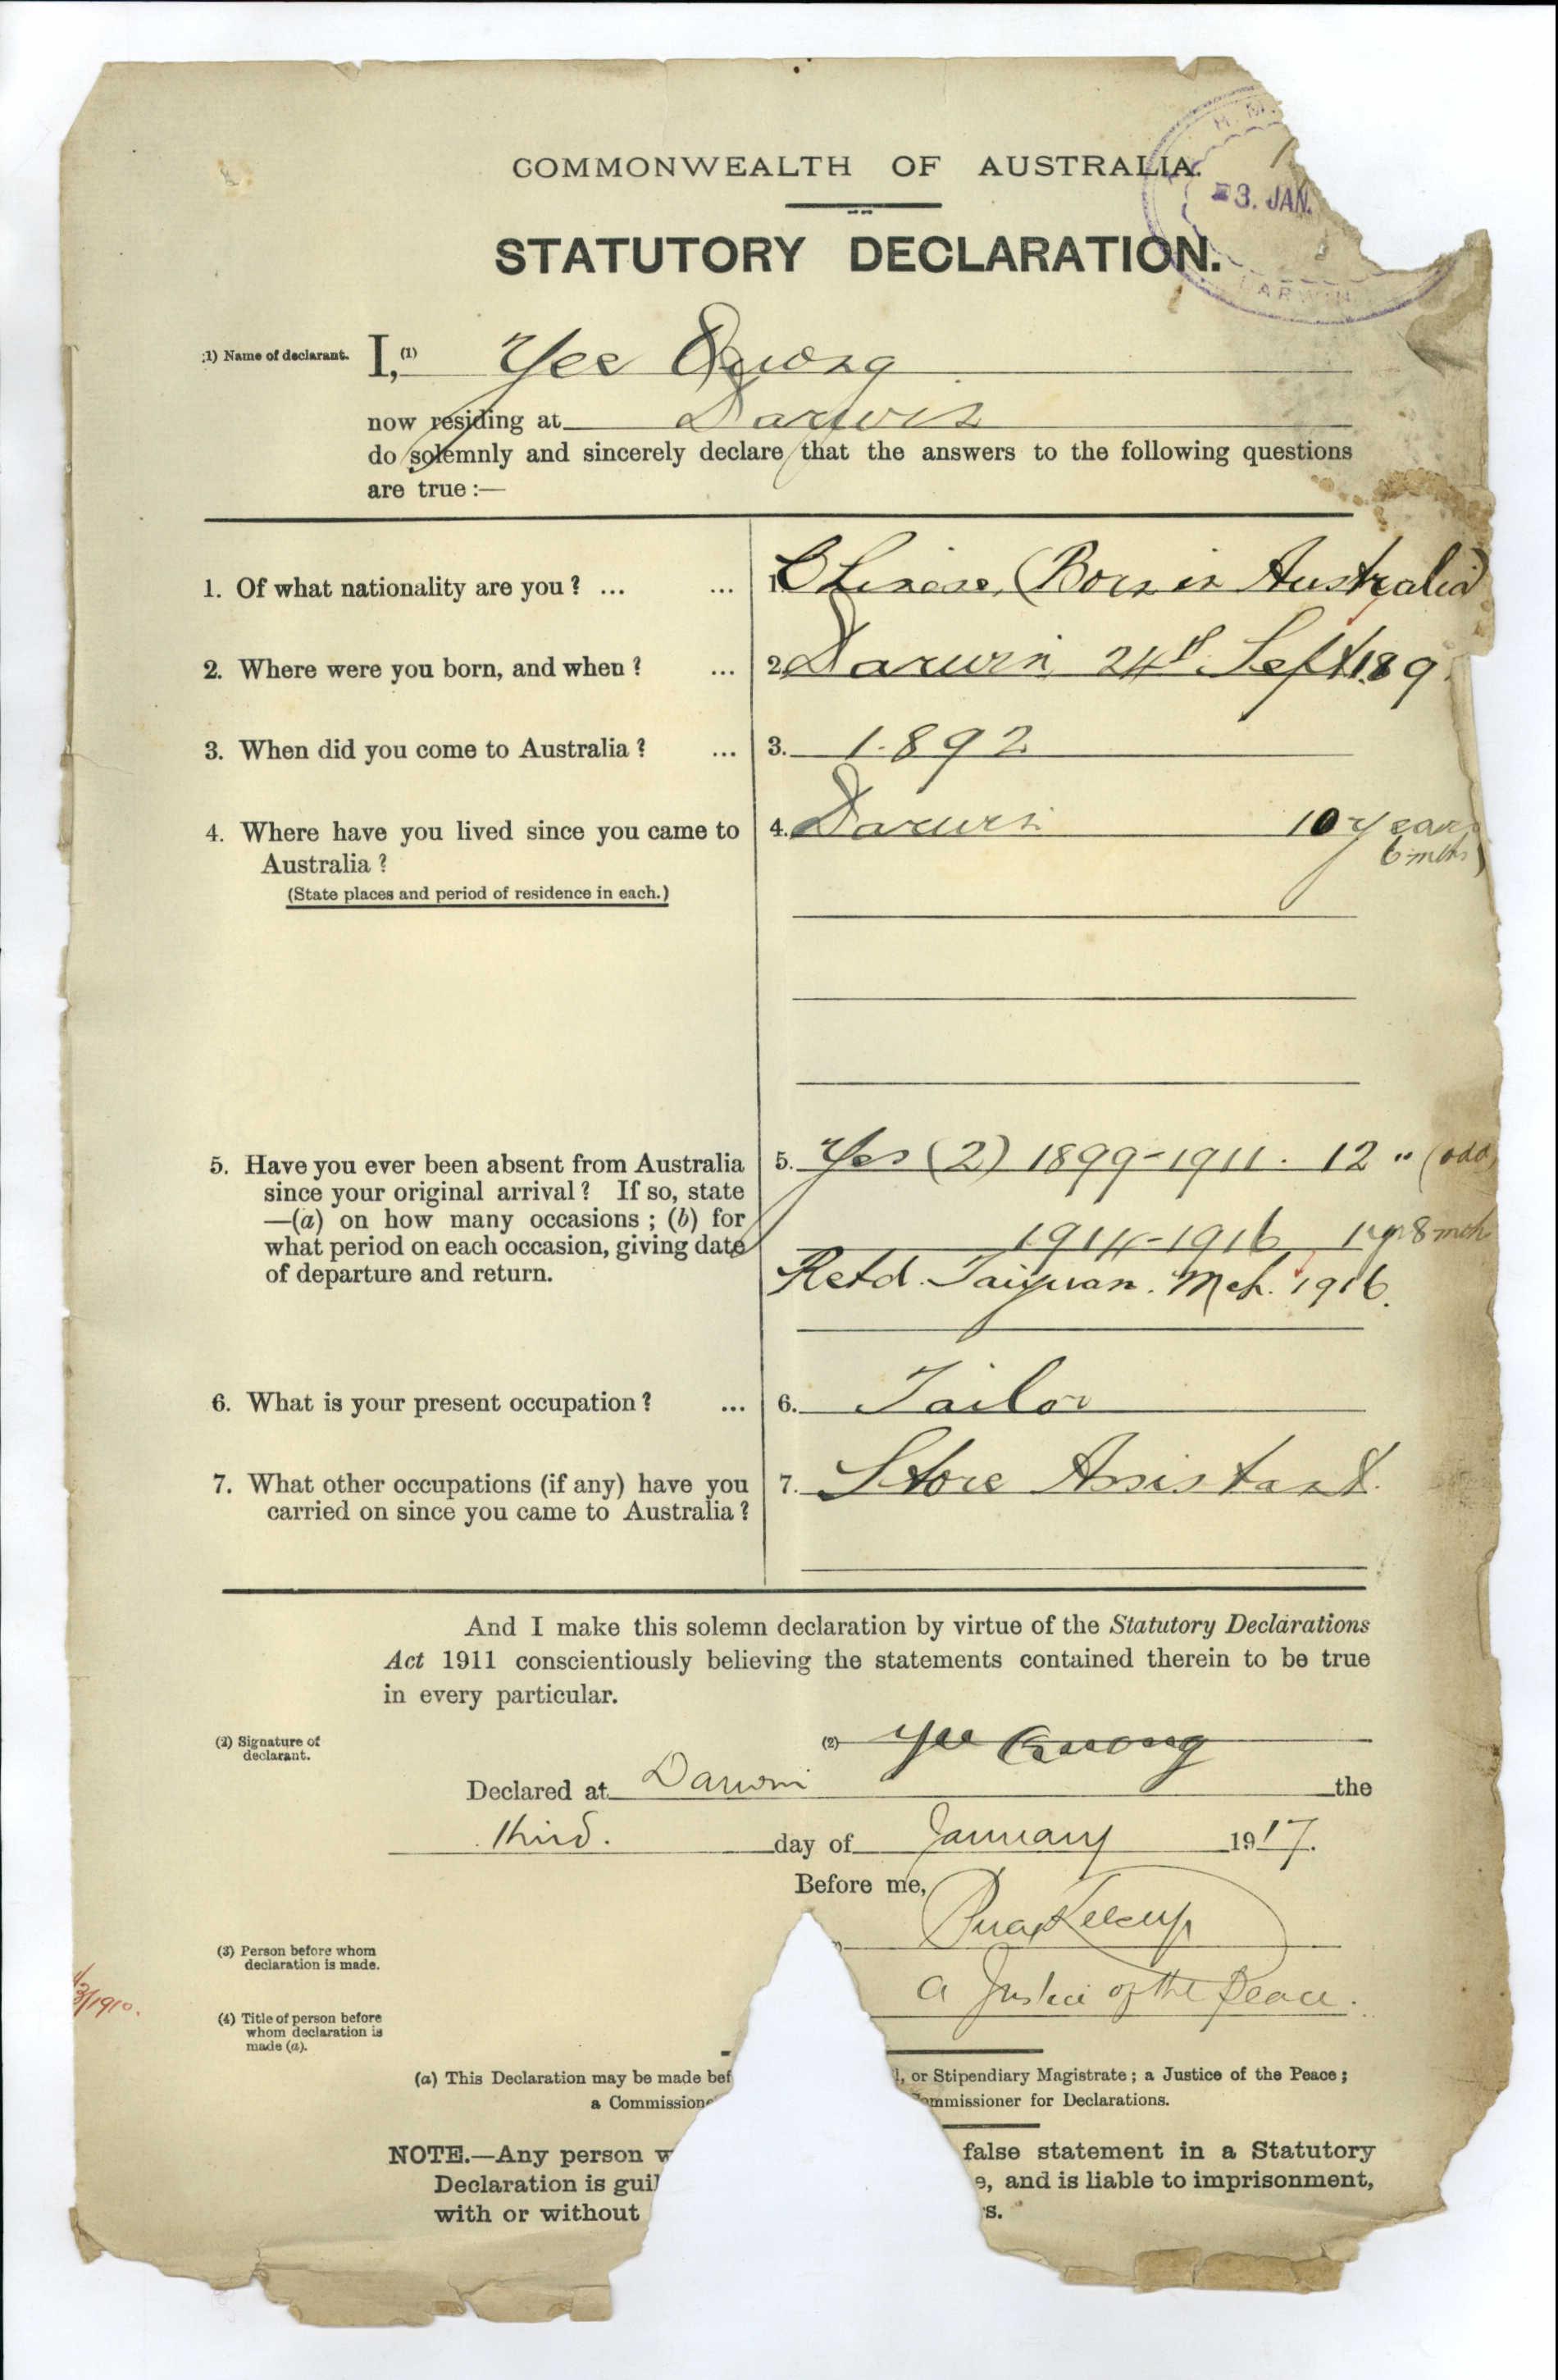 H. M.
COMMONWEALTH OF AUSTRALIA.
3. JAN.
STATUTORY DECLARATION.
DARWIN
(1) Name of declarant. I, (1) Yee Quong
now residing at Darwin
do solemnly and sincerely declare that the answers to the following questions
are true :—
1. Of what nationality are you ? ... ... 1. Chinese, (Born in Australia)
2. Where were you born, and when ? ... 2. Darwin 24th Sept 189
3. When did you come to Australia ? ... 3. 1892
4. Where have you lived since you came to 4. Darwin 10 years
Australia ? 6 mths)
(State places and period of residence in each.)
5. Have you ever been absent from Australia 5. Yes (2) 1899-1911. 12 " (odd)
since your original arrival ? If so, state
—(a) on how many occasions ; (b) for
what period on each occasion, giving date 1914-1916 1 yr 8 mth
of departure and return. Retd. Taiyuan. Mch. 1916.
6. What is your present occupation ? ... 6. Tailor
7. What other occupations (if any) have you 7. Store Assistant.
carried on since you came to Australia ?
And I make this solemn declaration by virtue of the Statutory Declarations
Act 1911 conscientiously believing the statements contained therein to be true
in every particular.
(2) Signature of (2) Yee Quong
declarant.
Declared at Darwin the
third. day of January 1917.
Before me,
(3) Person before whom
declaration is made.
a Justice of the Peace.
3/1910.
(4) Title of person before
whom declaration is
made (a).
(a) This Declaration may be made bef , or Stipendiary Magistrate ; a Justice of the Peace ;
a Commissione ommissioner for Declarations.
NOTE.—Any person w false statement in a Statutory
Declaration is guil e, and is liable to imprisonment,
with or without s.